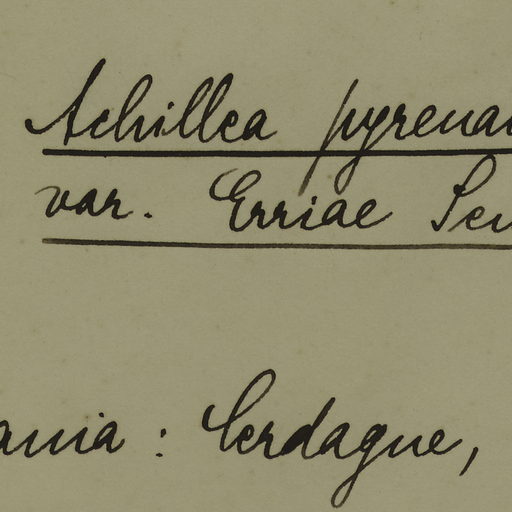 Achillea pyrenai
var. Erriae Sen
ania : Cerdagne,